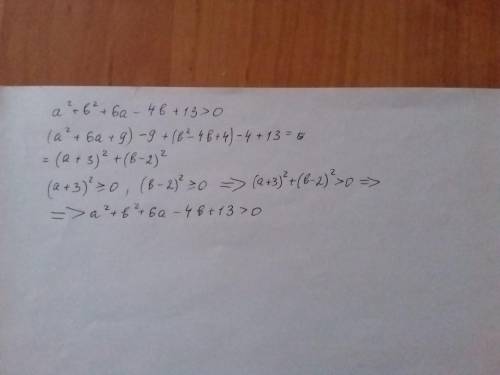 a² + b² + 6a - 4b + 13 > 0
(a² + 6a + 9) - 9 + (b² - 4b + 4) - 4 + 13 =
= (a + 3)² + (b - 2)²
(a+3)² ≥ 0 , (b-2)² ≥ 0 => (a+3)² + (b-2)² > 0 =>
=> a² + b² + 6a - 4b + 13 > 0